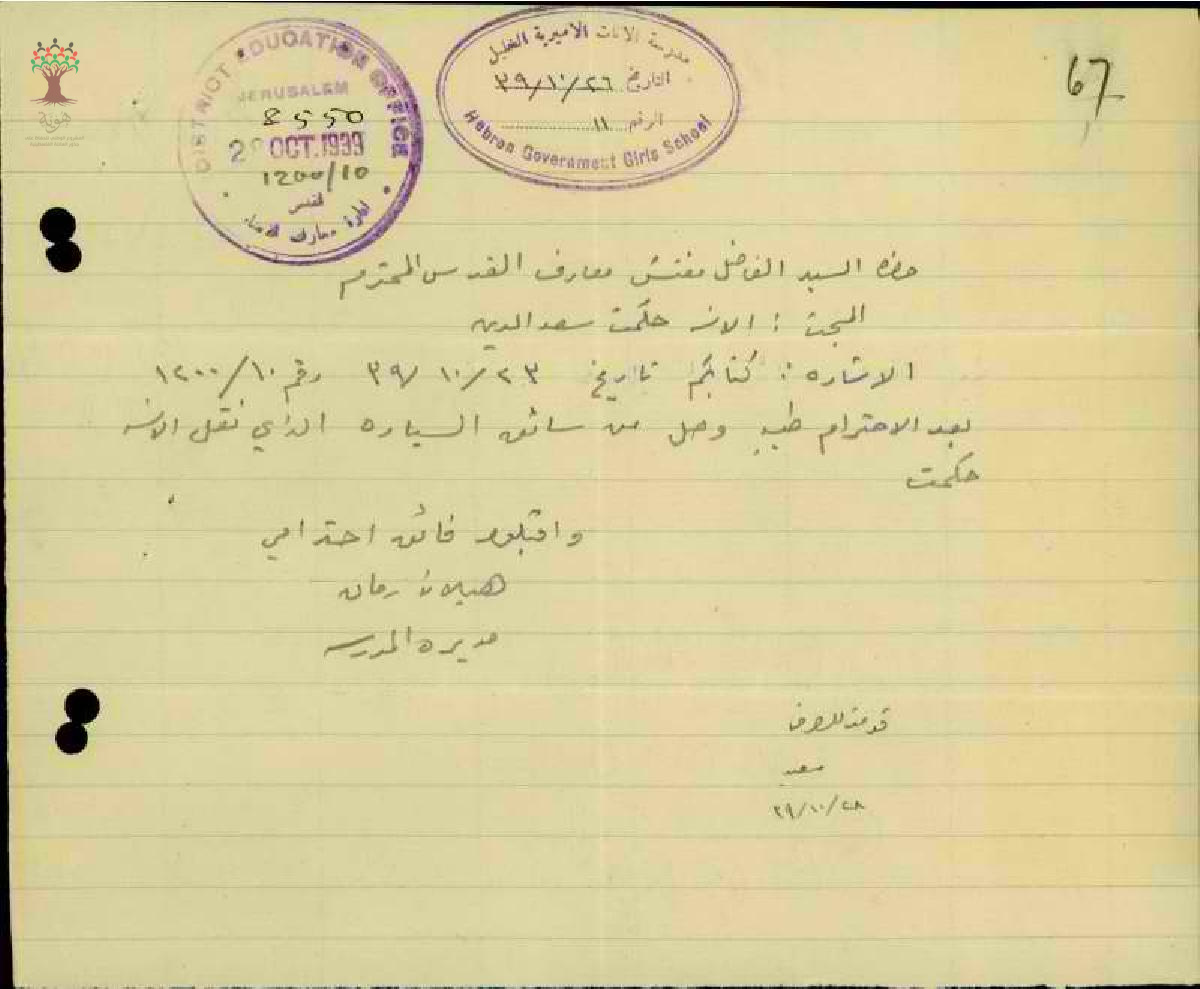 67
DISTRICT EDUCATION OFFICE
JERUSALEM
8550
2 OCT.1939
1200/10
القدس
ادارة معارف
مدرسة الاناث الأميرية الخليل
التاريخ ٣٩/١٠/٢٦
الرقم ١١
Hebron Government Girls School
حضرة السيد الفاضل مفتش معارف القدس المحترم
المبحث : الانسه حكمت سعد الدين
الاشاره : كتابكم تاريخ ٣٩/١٠/٢٣ رقم ١٢٠٠/١٠
بعد الاحترام طيه وصل من سائق السياره الذي نقل الانسه
حكمت
واقبلوا فائق احترامي
هيلانة رمان
مديره المدرسه
هوية